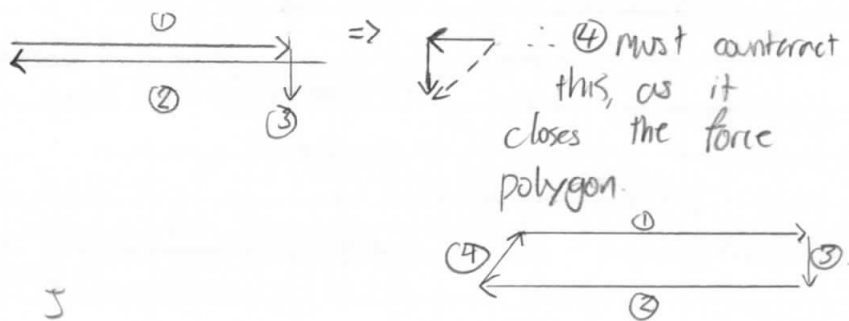 ①
⇒ ∴ ④ must counteract
② this, as it
③ closes the force
polygon.
①
④ ③
②
J